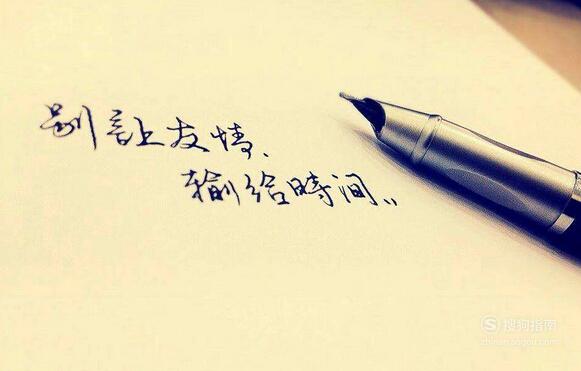 别讓友情、
输给時间..
搜狗指南
zhinan.sogou.com